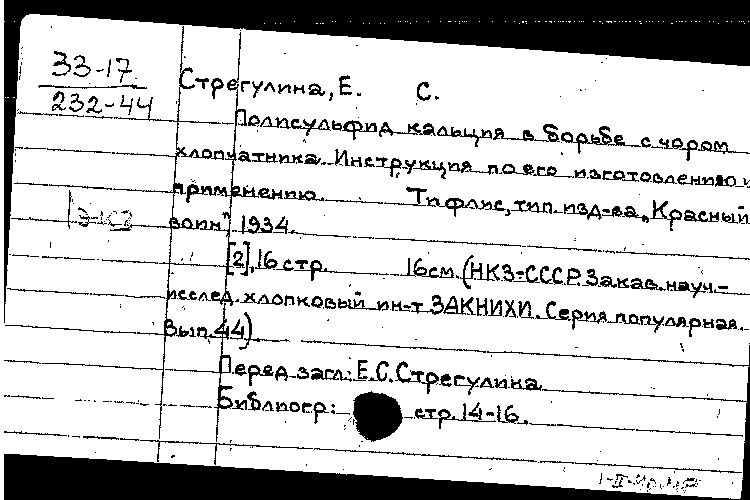 33-17
232-44
Стрегулина, Е. С.
Полисульфид кальция в борьбе с чором
хлопчатника. Инструкция по его изготовлению и
применению. Тифлис, тип. изд-ва „Красный
воин", 1934.
[2], 16 стр. 16 см. (НКЗ-СССР. Закав. науч.-
исслед. хлопковый ин-т ЗАКНИХИ. Серия популярная.
Вып. 44).
Перед загл.: Е.С. Стрегулина
Библиогр: стр. 14-16.